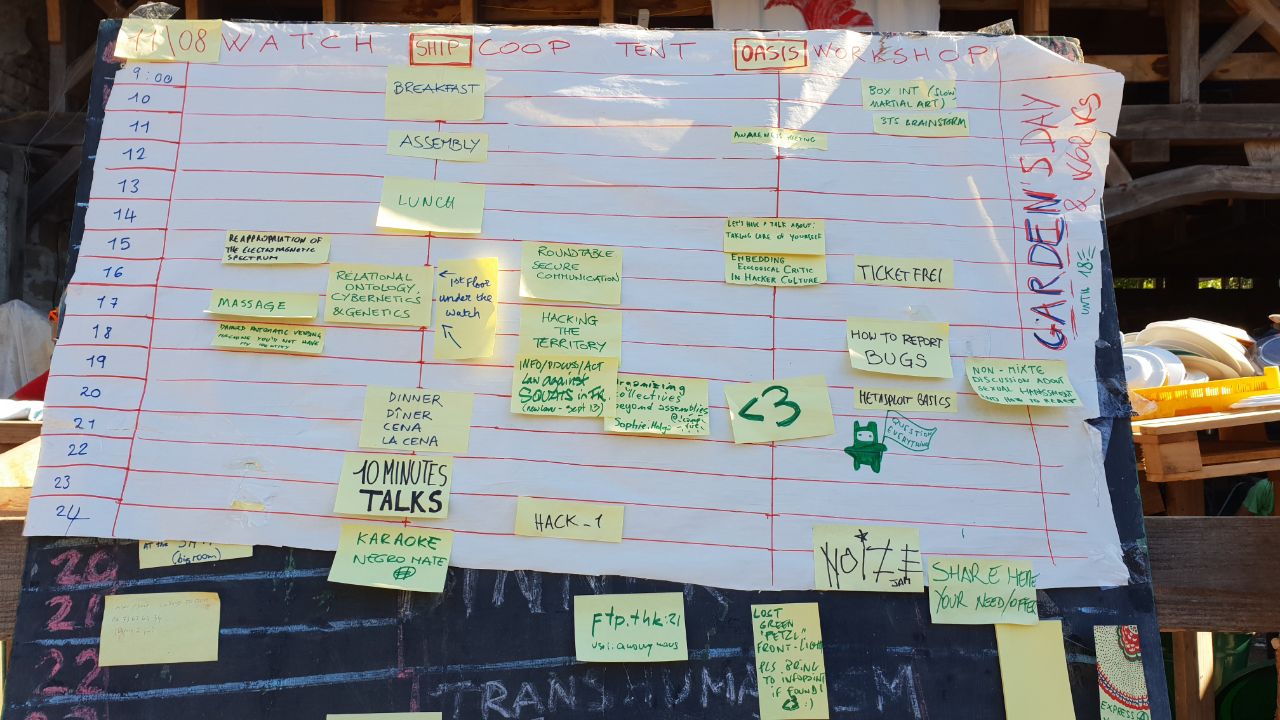 11\08 WATCH SHIP COOP TENT OASIS WORKSHOP
GARDEN'S DAY
& WORKS
UNTIL 18
9:00
10
11
12
13
14
15
16
17
18
19
20
21
22
23
24
BREAKFAST
BOX INT (SLOW
MARTIAL ART)
3TS BRAINSTORM
ASSEMBLY
LUNCH
REAPPROPRIATION OF
THE ELECTROMAGNETIC
SPECTRUM
RELATIONAL
ONTOLOGY,
CYBERNETICS
& GENETICS
1st Floor
under the
watch
ROUNDTABLE
SECURE
COMMUNICATION
LET'S HAVE A TALK ABOUT:
TAKING CARE OF YOURSELF
EMBEDDING
ECOLOGICAL CRITIC
IN HACKER CULTURE
TICKET FREI
MASSAGE
DAMNED AUTOMATIC VENDING
MACHINE YOU'LL NOT HAVE
MY IDENTITY
HACKING
THE
TERRITORY
HOW TO REPORT
BUGS
INFO/DISCUSS/ACT
Law against
SQUATS in FR
(new law - sept 13)
Organizing
collectives
beyond assemblies
<3
METASPLOIT BASICS
NON-MIXTE
DISCUSSION ABOUT
SEXUAL HARASSMENT
AND HOW TO REACT
QUESTION
EVERYTHING
DINNER
DÎNER
CENA
LA CENA
10 MINUTES
TALKS
HACK_1
KARAOKE
NEGRO MATE
NOIZE
JAM
SHARE HERE
YOUR NEED/OFFER
AT THE
(big room)
20
21
22
ftp.thk:21
user: anonymous
LOST
GREEN
"PETZL"
FRONT-LIGHT
PLS BRING
TO INFOPOINT
IF FOUND!
<3 :)
TRANSHUMA M
EXPRESS